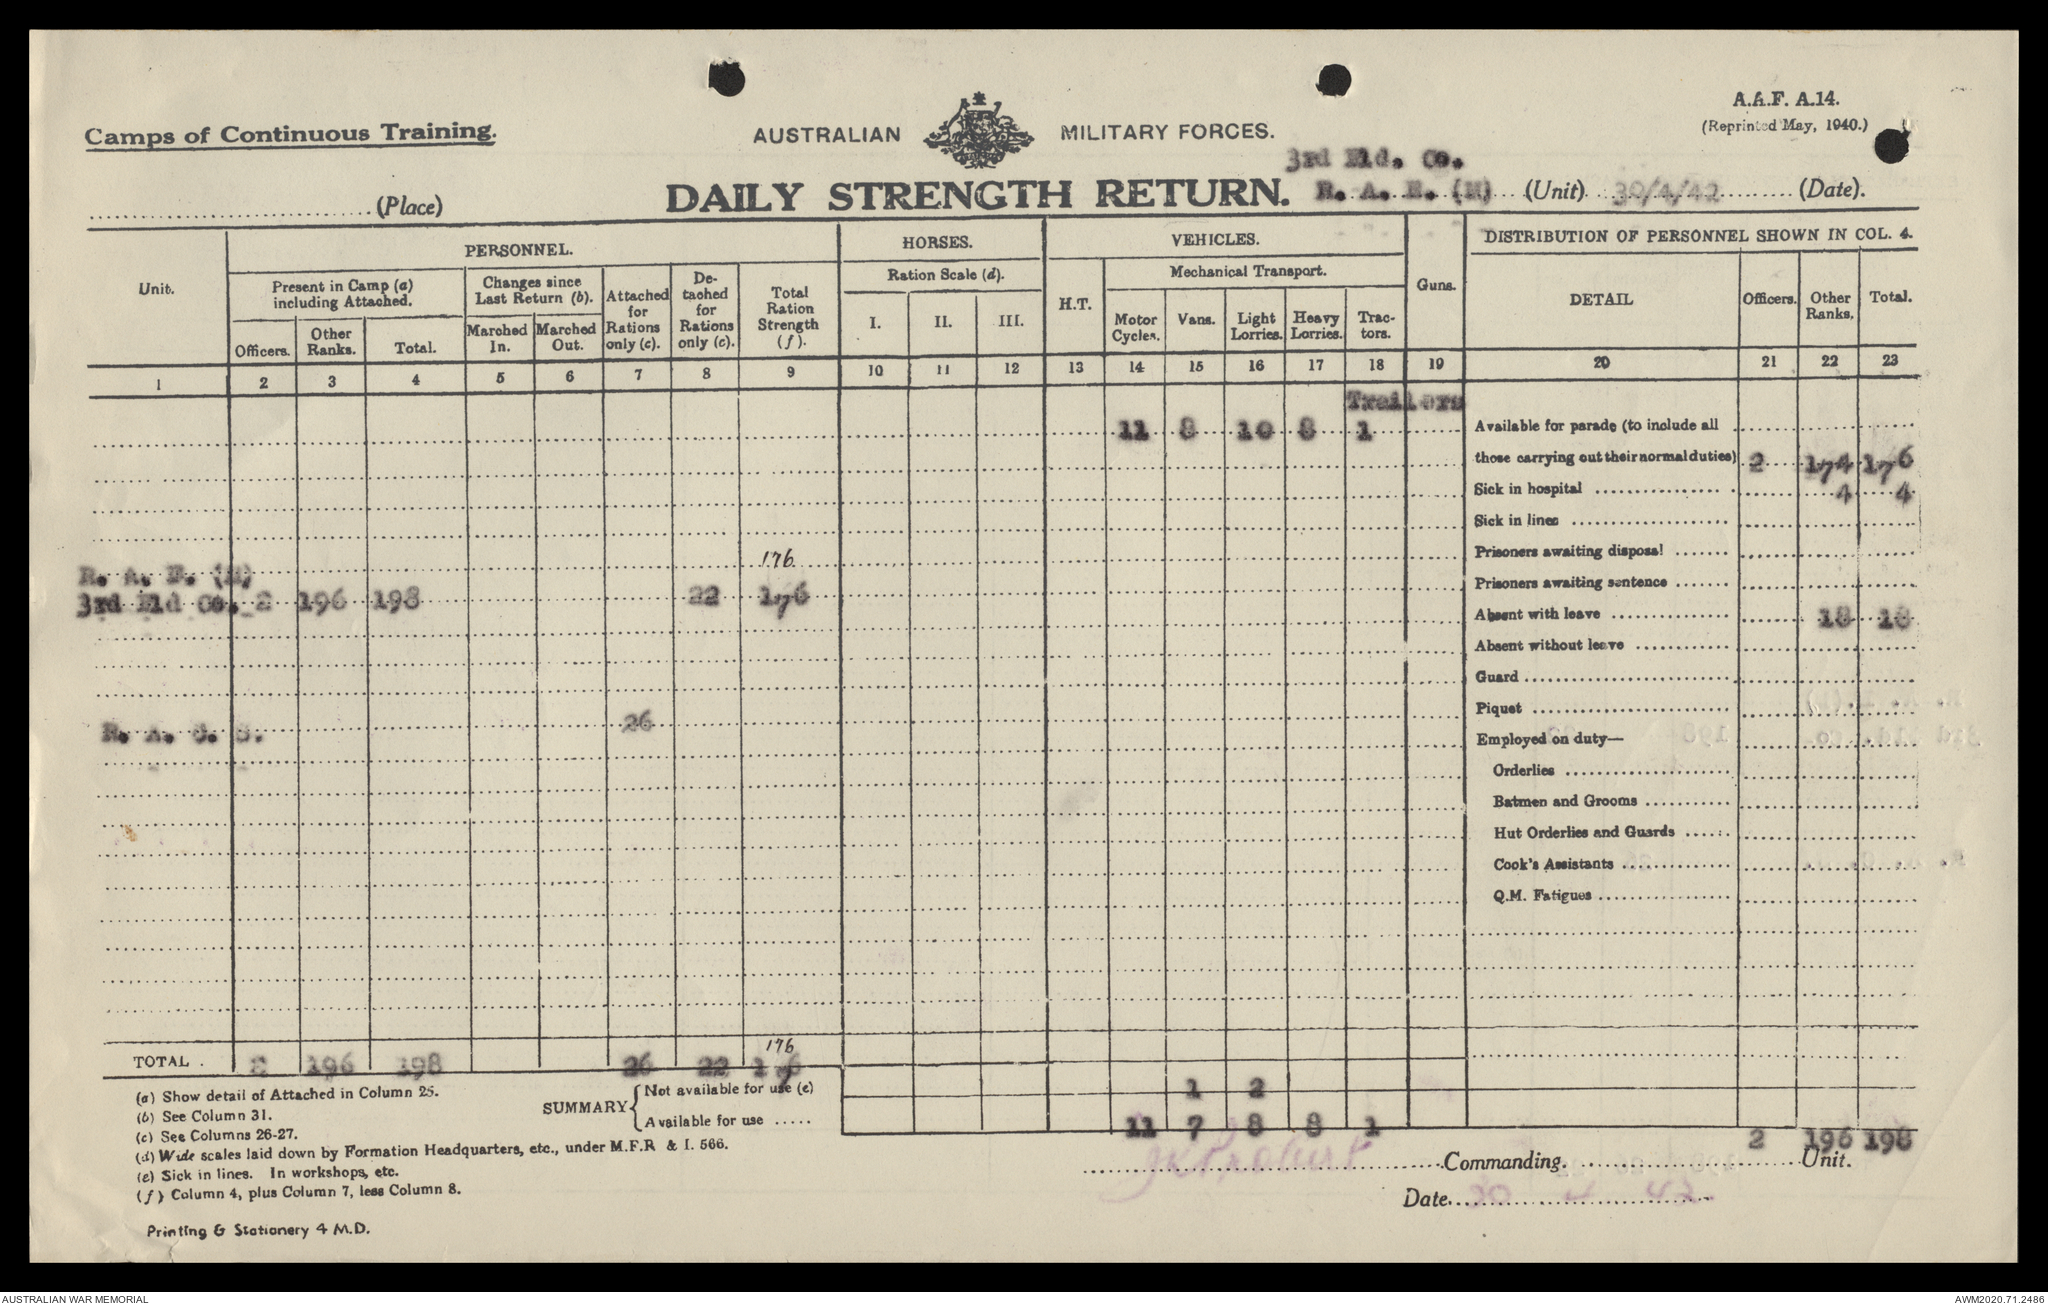 A.A.F. A.14.
(Reprinted May, 1940.)
Camps of Continuous Training.
AUSTRALIAN MILITARY FORCES.
3rd Fld. Co.
.....(Place) DAILY STRENGTH RETURN. R. A. E. (M) (Unit) 30/4/42 (Date).
PERSONNEL. HORSES. VEHICLES. DISTRIBUTION OF PERSONNEL SHOWN IN COL. 4.
Unit. Present in Camp (a) including Attached. Changes since Last Return (b). Attached for Rations only (c). Detached for Rations only (c). Total Ration Strength (f). Ration Scale (d). H.T. Mechanical Transport. Guns. DETAIL Officers. Other Ranks. Total.
Officers. Other Ranks. Total. Marched In. Marched Out. I. II. III. Motor Cycles. Vans. Light Lorries. Heavy Lorries. Tractors.
1 2 3 4 5 6 7 8 9 10 11 12 13 14 15 16 17 18 19 20 21 22 23
Trailers
11 8 10 8 1 Available for parade (to include all
those carrying out their normal duties) 2 174 176
Sick in hospital 4 4
Sick in lines
Prisoners awaiting disposal
176
R. A. E. (M) Prisoners awaiting sentence
3rd Fld Co. 2 196 198 22 176
Absent with leave 18 18
Absent without leave
Guard
Piquet
R. A. O. S. 26
Employed on duty—
Orderlies
Batmen and Grooms
Hut Orderlies and Guards
Cook's Assistants
Q.M. Fatigues
176
TOTAL . 2 196 198 26 22 176
(a) Show detail of Attached in Column 25.
(b) See Column 31.
(c) See Columns 26-27.
(d) Wide scales laid down by Formation Headquarters, etc., under M.F.R & I. 566.
(e) Sick in lines. In workshops, etc.
(f) Column 4, plus Column 7, less Column 8.
SUMMARY Not available for use (e) 1 2
Available for use ..... 11 7 8 8 1
2 196 198
Commanding. Unit.
Date 30 4 42.
Printing & Stationery 4 M.D.
AUSTRALIAN WAR MEMORIAL AWM2020.71.2486